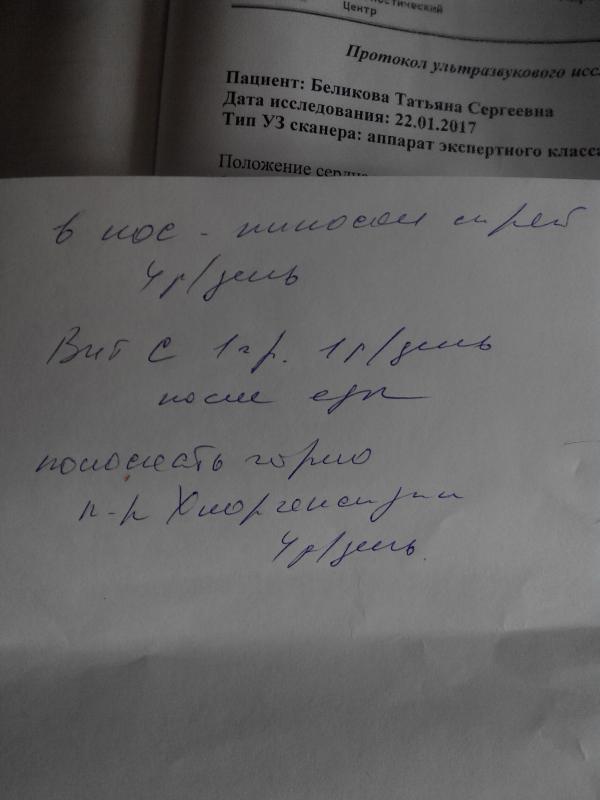 Центр
Протокол ультразвукового исс
Пациент: Беликова Татьяна Сергеевна
Дата исследования: 22.01.2017
Тип УЗ сканера: аппарат экспертного класса
Положение сердца
в нос - пиносол спрей
4 р/день
Вит С 1 гр. 1 р/день
после еды
полоскать горло
р-р Хлоргексидин
4 р/день.